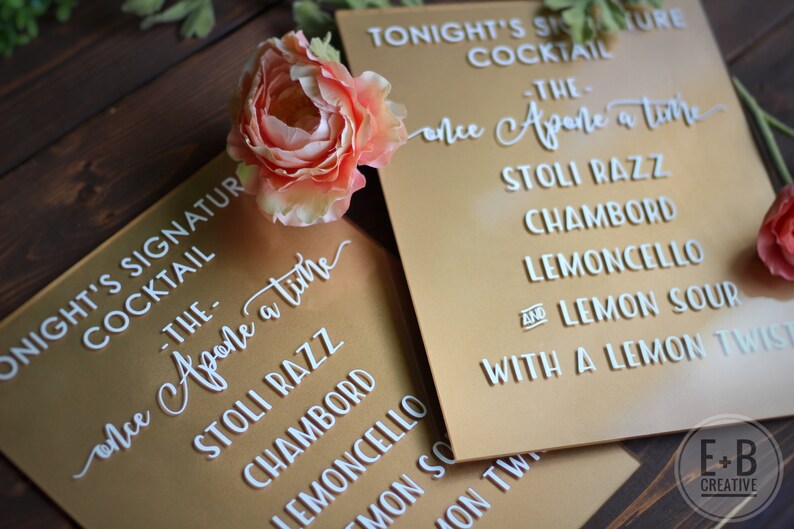 TONIGHT'S SIGNATURE
COCKTAIL
-THE-
once Apone a time
STOLI RAZZ
CHAMBORD
LEMONCELLO
AND LEMON SOUR
WITH A LEMON TWIST
TONIGHT'S SIGNATURE
COCKTAIL
-THE-
once Apone a time
STOLI RAZZ
CHAMBORD
LEMONCELLO
LEMON SOU
LEMON TWIS
E+B
CREATIVE